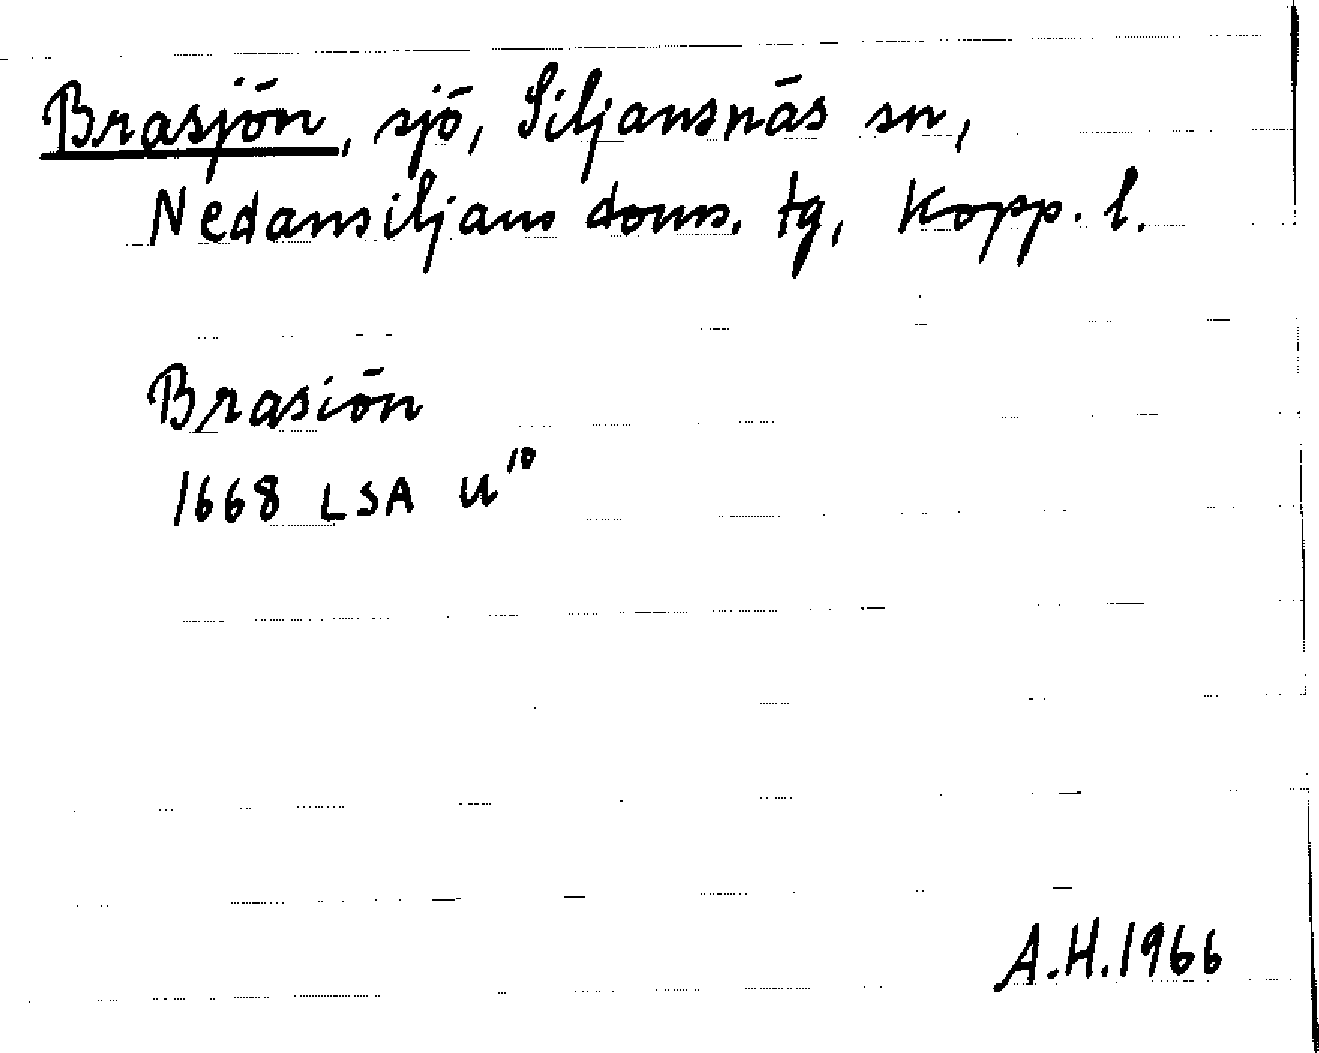 Brasjön, sjö, Siljansnäs sn,
Nedansiljans doms. tg, Kopp. l.
Brasiön
1668 LSA U¹⁰
A.H. 1966